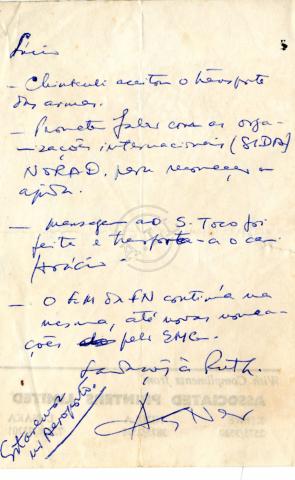 Lúcio
– Chinkuli aceitou o transporte
das armas.
– Prometeu falar com as orga-
nizações internacionais (SIDA,
NORAD. para recomeçar a
ajuda.
– mensagem ao S. Toco foi
feita e transporta-a o cam
Horácio –
– O EM da FN continúa na
mesma, até novas nomea-
ções pelo EMG.
Saudações à Ruth.
Estaremos
no Aeroporto.
With Compliments from
ASSOCIATED PRINTERS LIMITED